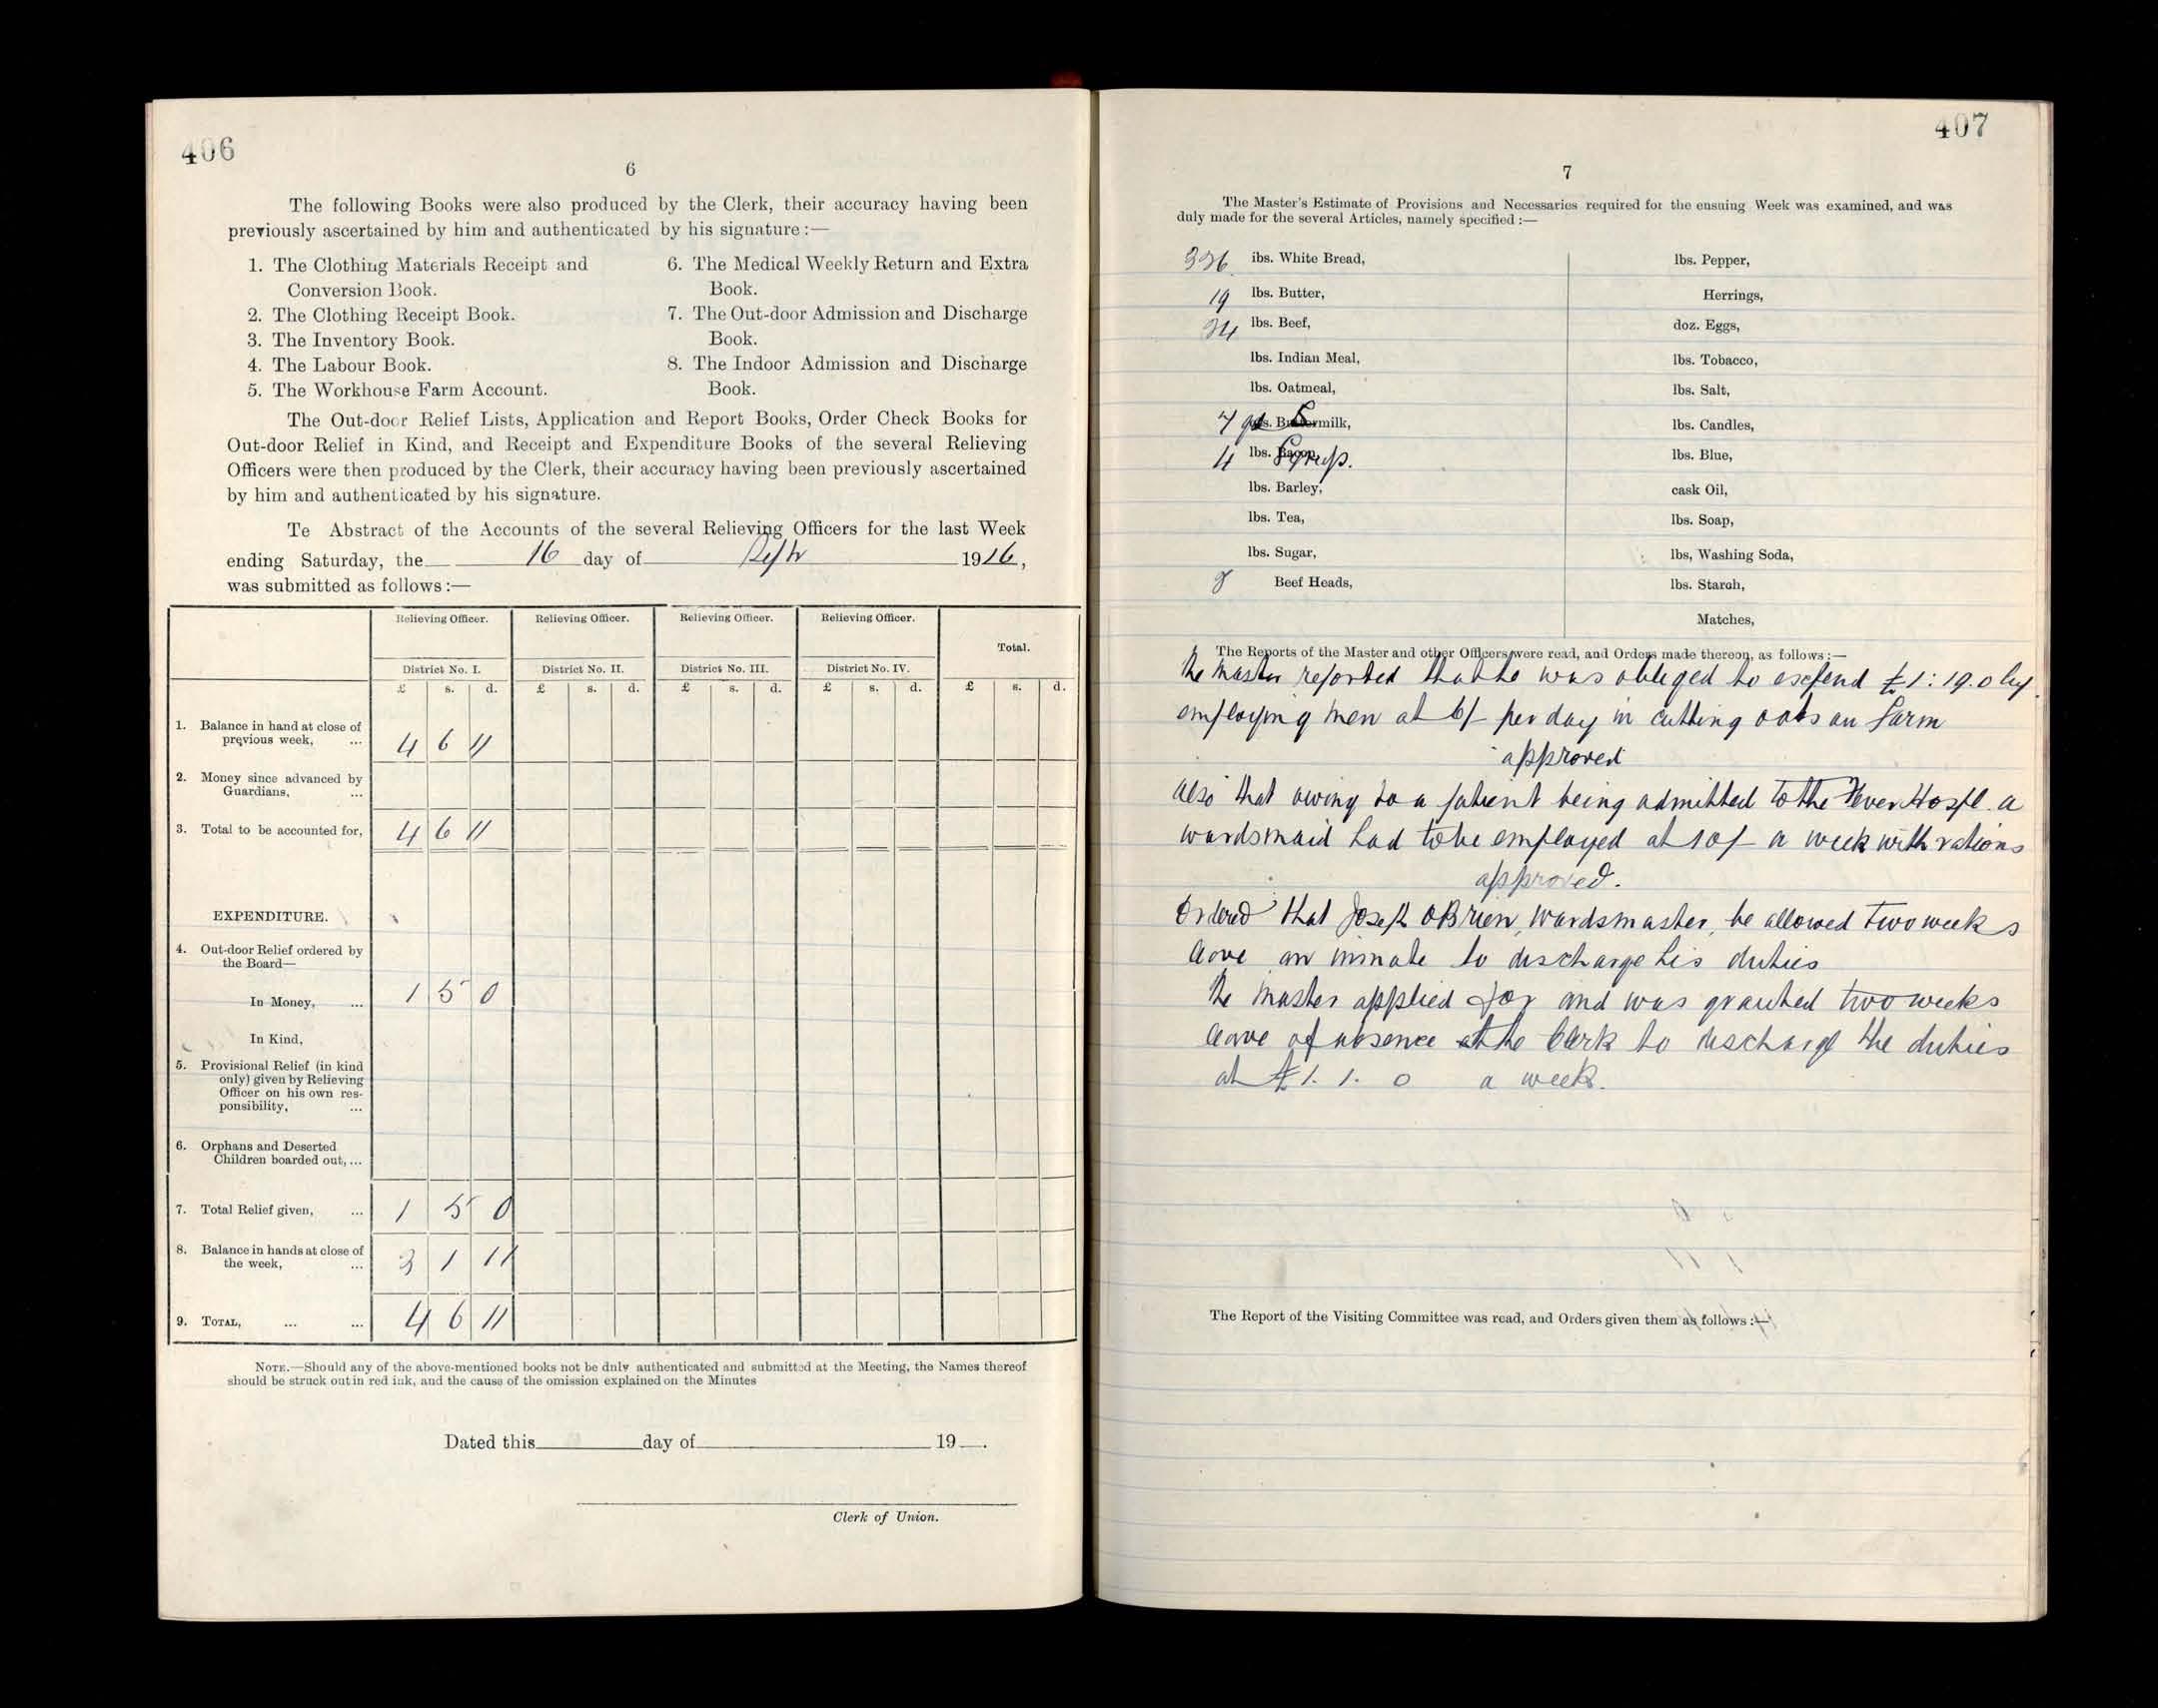 406
6
The following Books were also produced by the Clerk, their accuracy having been
previously ascertained by him and authenticated by his signature :—
1. The Clothing Materials Receipt and
Conversion Book.
2. The Clothing Receipt Book.
3. The Inventory Book.
4. The Labour Book.
5. The Workhouse Farm Account.
6. The Medical Weekly Return and Extra
Book.
7. The Out-door Admission and Discharge
Book.
8. The Indoor Admission and Discharge
Book.
The Out-door Relief Lists, Application and Report Books, Order Check Books for
Out-door Relief in Kind, and Receipt and Expenditure Books of the several Relieving
Officers were then produced by the Clerk, their accuracy having been previously ascertained
by him and authenticated by his signature.
Te Abstract of the Accounts of the several Relieving Officers for the last Week
ending Saturday, the 16 day of Septr 1916,
was submitted as follows :—
Relieving Officer. Relieving Officer. Relieving Officer. Relieving Officer. Total.
District No. I. District No. II. District No. III. District No. IV.
£ s. d. £ s. d. £ s. d. £ s. d. £ s. d.
1. Balance in hand at close of
previous week, ... 4 6 11
2. Money since advanced by
Guardians, ...
3. Total to be accounted for, 4 6 11
EXPENDITURE.
4. Out-door Relief ordered by
the Board—
In Money, ... 1 5 0
In Kind,
5. Provisional Relief (in kind
only) given by Relieving
Officer on his own res-
ponsibility, ...
6. Orphans and Deserted
Children boarded out, ...
7. Total Relief given, ... 1 5 0
8. Balance in hands at close of
the week, ... 3 1 11
9. TOTAL, ... ... 4 6 11
NOTE.—Should any of the above-mentioned books not be duly authenticated and submitted at the Meeting, the Names thereof
should be struck out in red ink, and the cause of the omission explained on the Minutes
Dated this day of 19 .
Clerk of Union.
407
7
The Master's Estimate of Provisions and Necessaries required for the ensuing Week was examined, and was
duly made for the several Articles, namely specified :—
336 lbs. White Bread,
19 lbs. Butter,
24 lbs. Beef,
lbs. Indian Meal,
lbs. Oatmeal,
7 qts. S. milk,
4 lbs. Syrup.
lbs. Barley,
lbs. Tea,
lbs. Sugar,
8 Beef Heads,
lbs. Pepper,
Herrings,
doz. Eggs,
lbs. Tobacco,
lbs. Salt,
lbs. Candles,
lbs. Blue,
cask Oil,
lbs. Soap,
lbs, Washing Soda,
lbs. Starch,
Matches,
The Reports of the Master and other Officers were read, and Orders made thereon, as follows :—
The Master reported that he was obliged to expend £1:19.0 by
employing men at 6/- per day in cutting oats on farm
approved
Also that owing to a patient being admitted to the Fever Hospl. a
wardsmaid had to be employed at 10/- a week with rations
approved.
Ordered that Joseph OBrien, Wardsmaster, be allowed two weeks
leave an inmate to discharge his duties
The Master applied for and was granted two weeks
leave of absence the Clerk to discharge the duties
at £1. 1. 0 a week.
The Report of the Visiting Committee was read, and Orders given them as follows :—